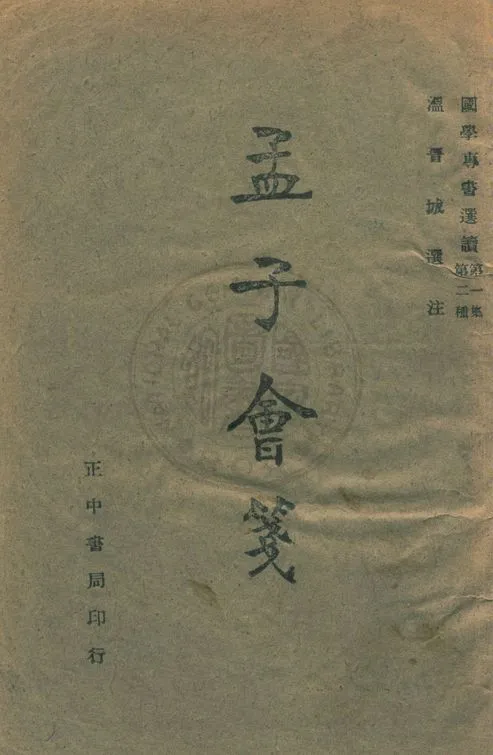 國學專書選讀 第一集 第二種
溫晋城選注
孟子會箋
正中書局印行